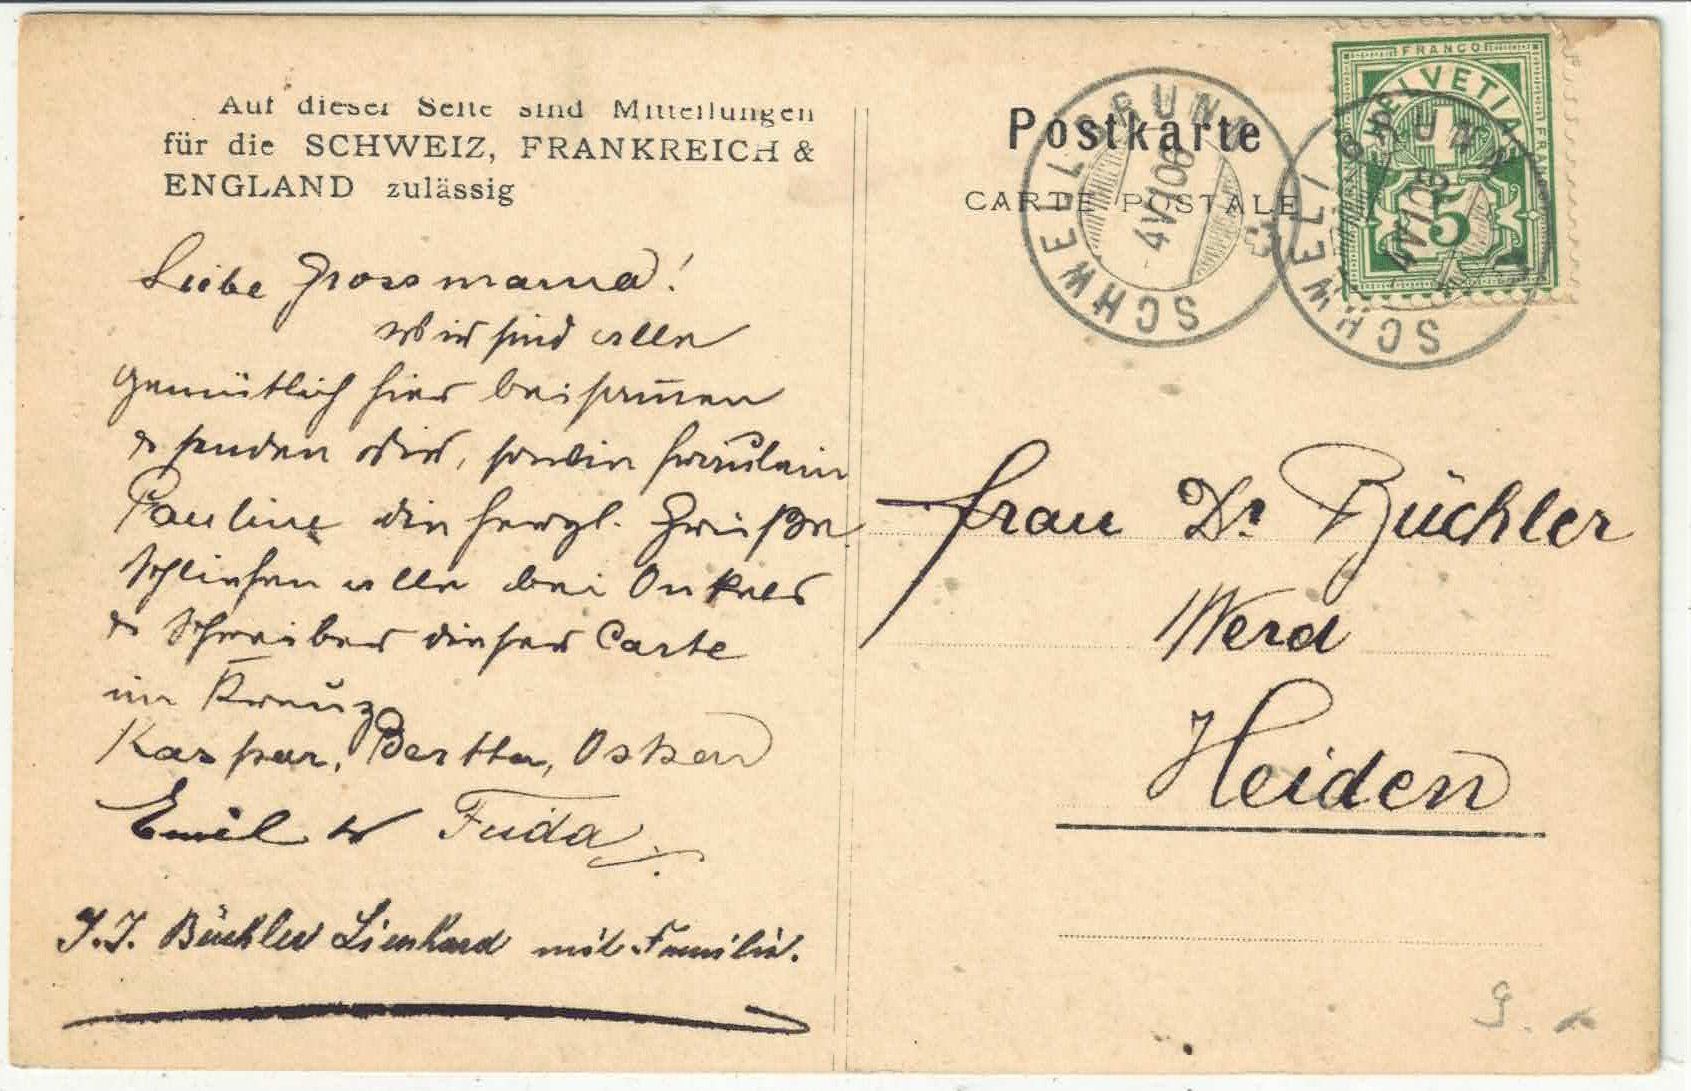 Auf dieser Seite sind Mitteilungen
für die SCHWEIZ, FRANKREICH &
ENGLAND zulässig
Liebe Grossmama!
Wir sind alle
gemütlich hier beisam̅en
& senden Dir, sowie Fräulein
Pauline die herzl. Grüße
Schliefen alle bei Onkels
& Schreiber dieser Carte
im Kreuz
Kaspar, Bertha, Oskar
Emil &
J. J. Büchler Lienhard mit Familie.
Postkarte
CARTE POSTALE
SCHWELLBRUNN
4 VI 06
SCHWELLBRUNN
FRANCO
HELVETIA
5
Frau Dr Büchler
Werd
Heiden